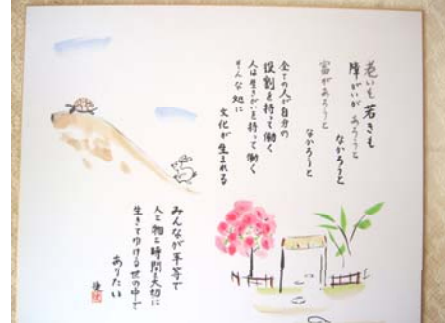 老いも若きも
障がいがあろうと
なかろうと
富があろうと
なかろうと
全ての人が自分の
役割を持って働く
人は生きがいを持って働く
そんな処に
文化が生まれる
みんなが平等で
人と物と時間を大切に
生きてゆける世の中で
ありたい